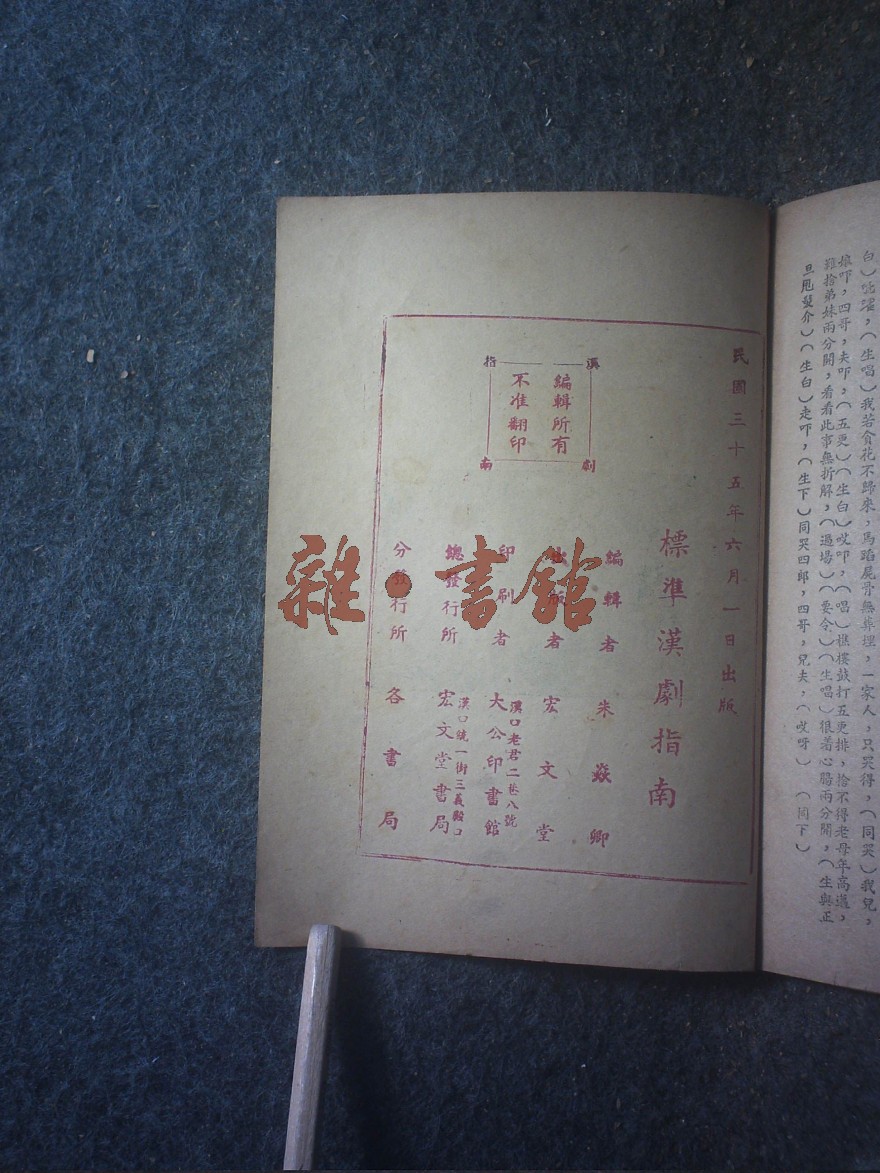 白）咙咚，（生唱）我若貪花不歸來，馬蹈屍骨無葬埋，一家人，只哭得，（同哭）我兒，
娘吓，四哥，夫吓，（五更）（生白）哎吓，（唱）樵樓鼓打五更排，捨不得老母年高邁，
難捨弟妹兩分開，看看此事無折解，（過場）（要令）（生唱）狠着心腸兩分開，（生與正
旦甩髮介）（生白）走吓，（生下）同哭四郎，四哥，兒夫，（哎呀）（同下）
民國三十五年六月一日出版
漢劇指南
編輯所有
不准翻印
標準漢劇指南
編輯者 朱焱卿
出版者 宏文堂
漢口老君二巷八號
印刷者 大公印書館
漢口統一街三義殿口
總發行所 宏文堂書局
分發行所 各書局
雜·書館